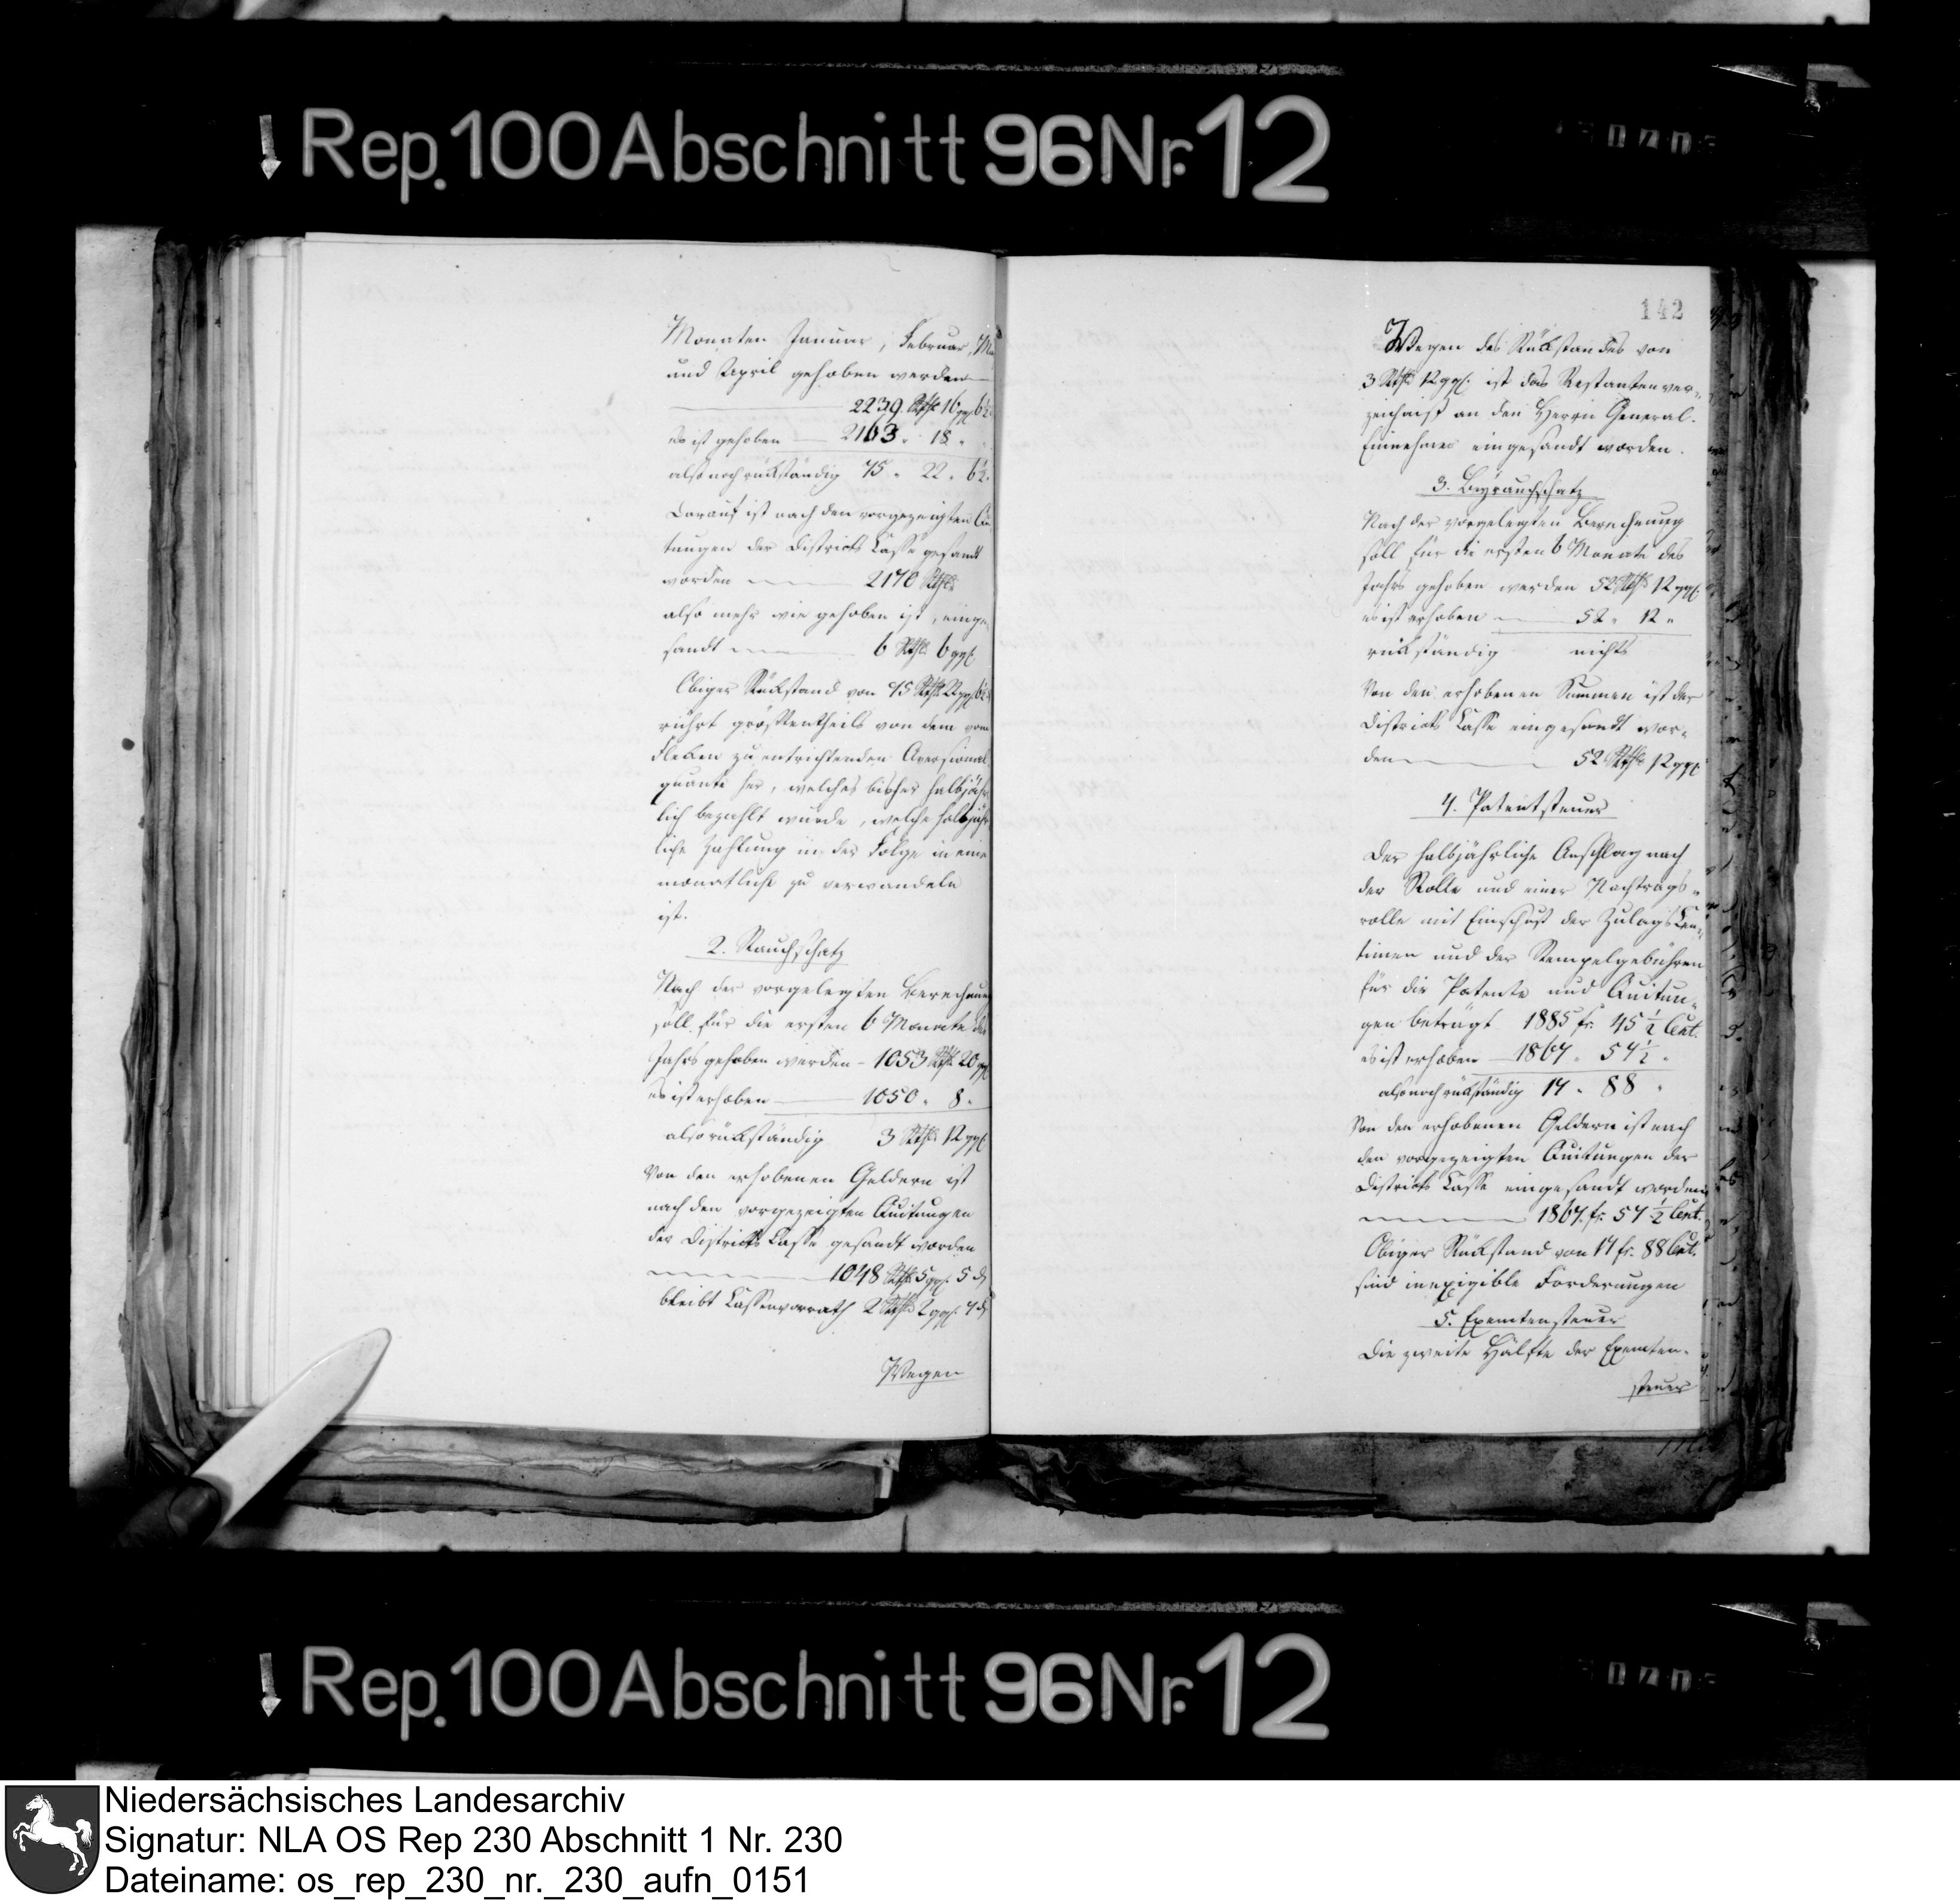 Rep. 100 Abschnitt 96 Nr. 12
Monaten Januar, Februar,
und April gehoben werden
2239 Rthlr 16 ggl 6½
es ist gehoben 2163 " 18 "
also noch rückständig 75 " 22 " 6½
Darauf ist nach den vorgezeigten Qui
tungen der Districts Casse gesandt
worden 2170 Rthlr
also mehr wie gehoben ist, einge-
sandt 6 Rthlr 6 ggl.
Obiger Rückstand von 75 Rthlr 22 ggl 6½
rührt größtentheils von dem vom
Flecken zu entrichtenden Aversional
quanti her, welches bisher halbjähr
lich bezahlt wurde, welche halbjähr
liche Zahlung in der Folge in eine
monatliche zu verwandeln
ist.
2. Rauchschatz
Nach der vorgelegten Berechnung
soll für die ersten 6 Monate des
Jahrs gehoben werden - 1053 Rthlr 20 ggl
es ist erhoben 1050 " 8 "
also rückständig 3 Rthlr 12 ggl.
Von den erhobenen Geldern ist
nach den vorgezeigten Quitungen
der Districts Casse gesandt worden
1048 Rthlr 5 ggl. 5 d
bleibt Cassenvorrath 2 Rthlr 2 ggl. 7 d
Wegen
142
Wegen des Rückstandes von
3 Rthlr 12 ggl. ist das Restantenver-
zeichniß an den Herrn General-
Einnehmer eingesandt worden.
3. Beyrauchschatz
Nach der vorgelegten Berechnung
soll für die ersten 6 Monate des
Jahrs gehoben werden 52 Rthlr 12 ggl.
es ist erhoben 52 " 12 "
rückständig nichts
Von den erhobenen Summen ist der
Districts Casse eingesandt wor-
den 52 Rthlr 12 ggl
4. Patentsteuer
Der halbjährliche Anschlag nach
der Rolle und einer Nachtrags-
rolle mit Einschuß der Zulags Cen-
timen und der Stempelgebühren
für die Patente und Quitun-
gen beträgt 1885 fr. 45½ Cent.
es ist erhoben 1867 " 57½ "
also noch rückständig 17 " 88 "
Von den erhobenen Geldern ist nach
den vorgezeigten Quitungen der
Districts Casse eingesandt worden
1867 fr. 57½ Cent.
Obiger Rückstand von 17 fr. 88 Cent.
sind inexigible Forderungen
5. Exemtensteuer
Die zweite Hälfte der Exemten-
steuer
Rep. 100 Abschnitt 96 Nr. 12
Niedersächsisches Landesarchiv
Signatur: NLA OS Rep 230 Abschnitt 1 Nr. 230
Dateiname: os_rep_230_nr._230_aufn_0151